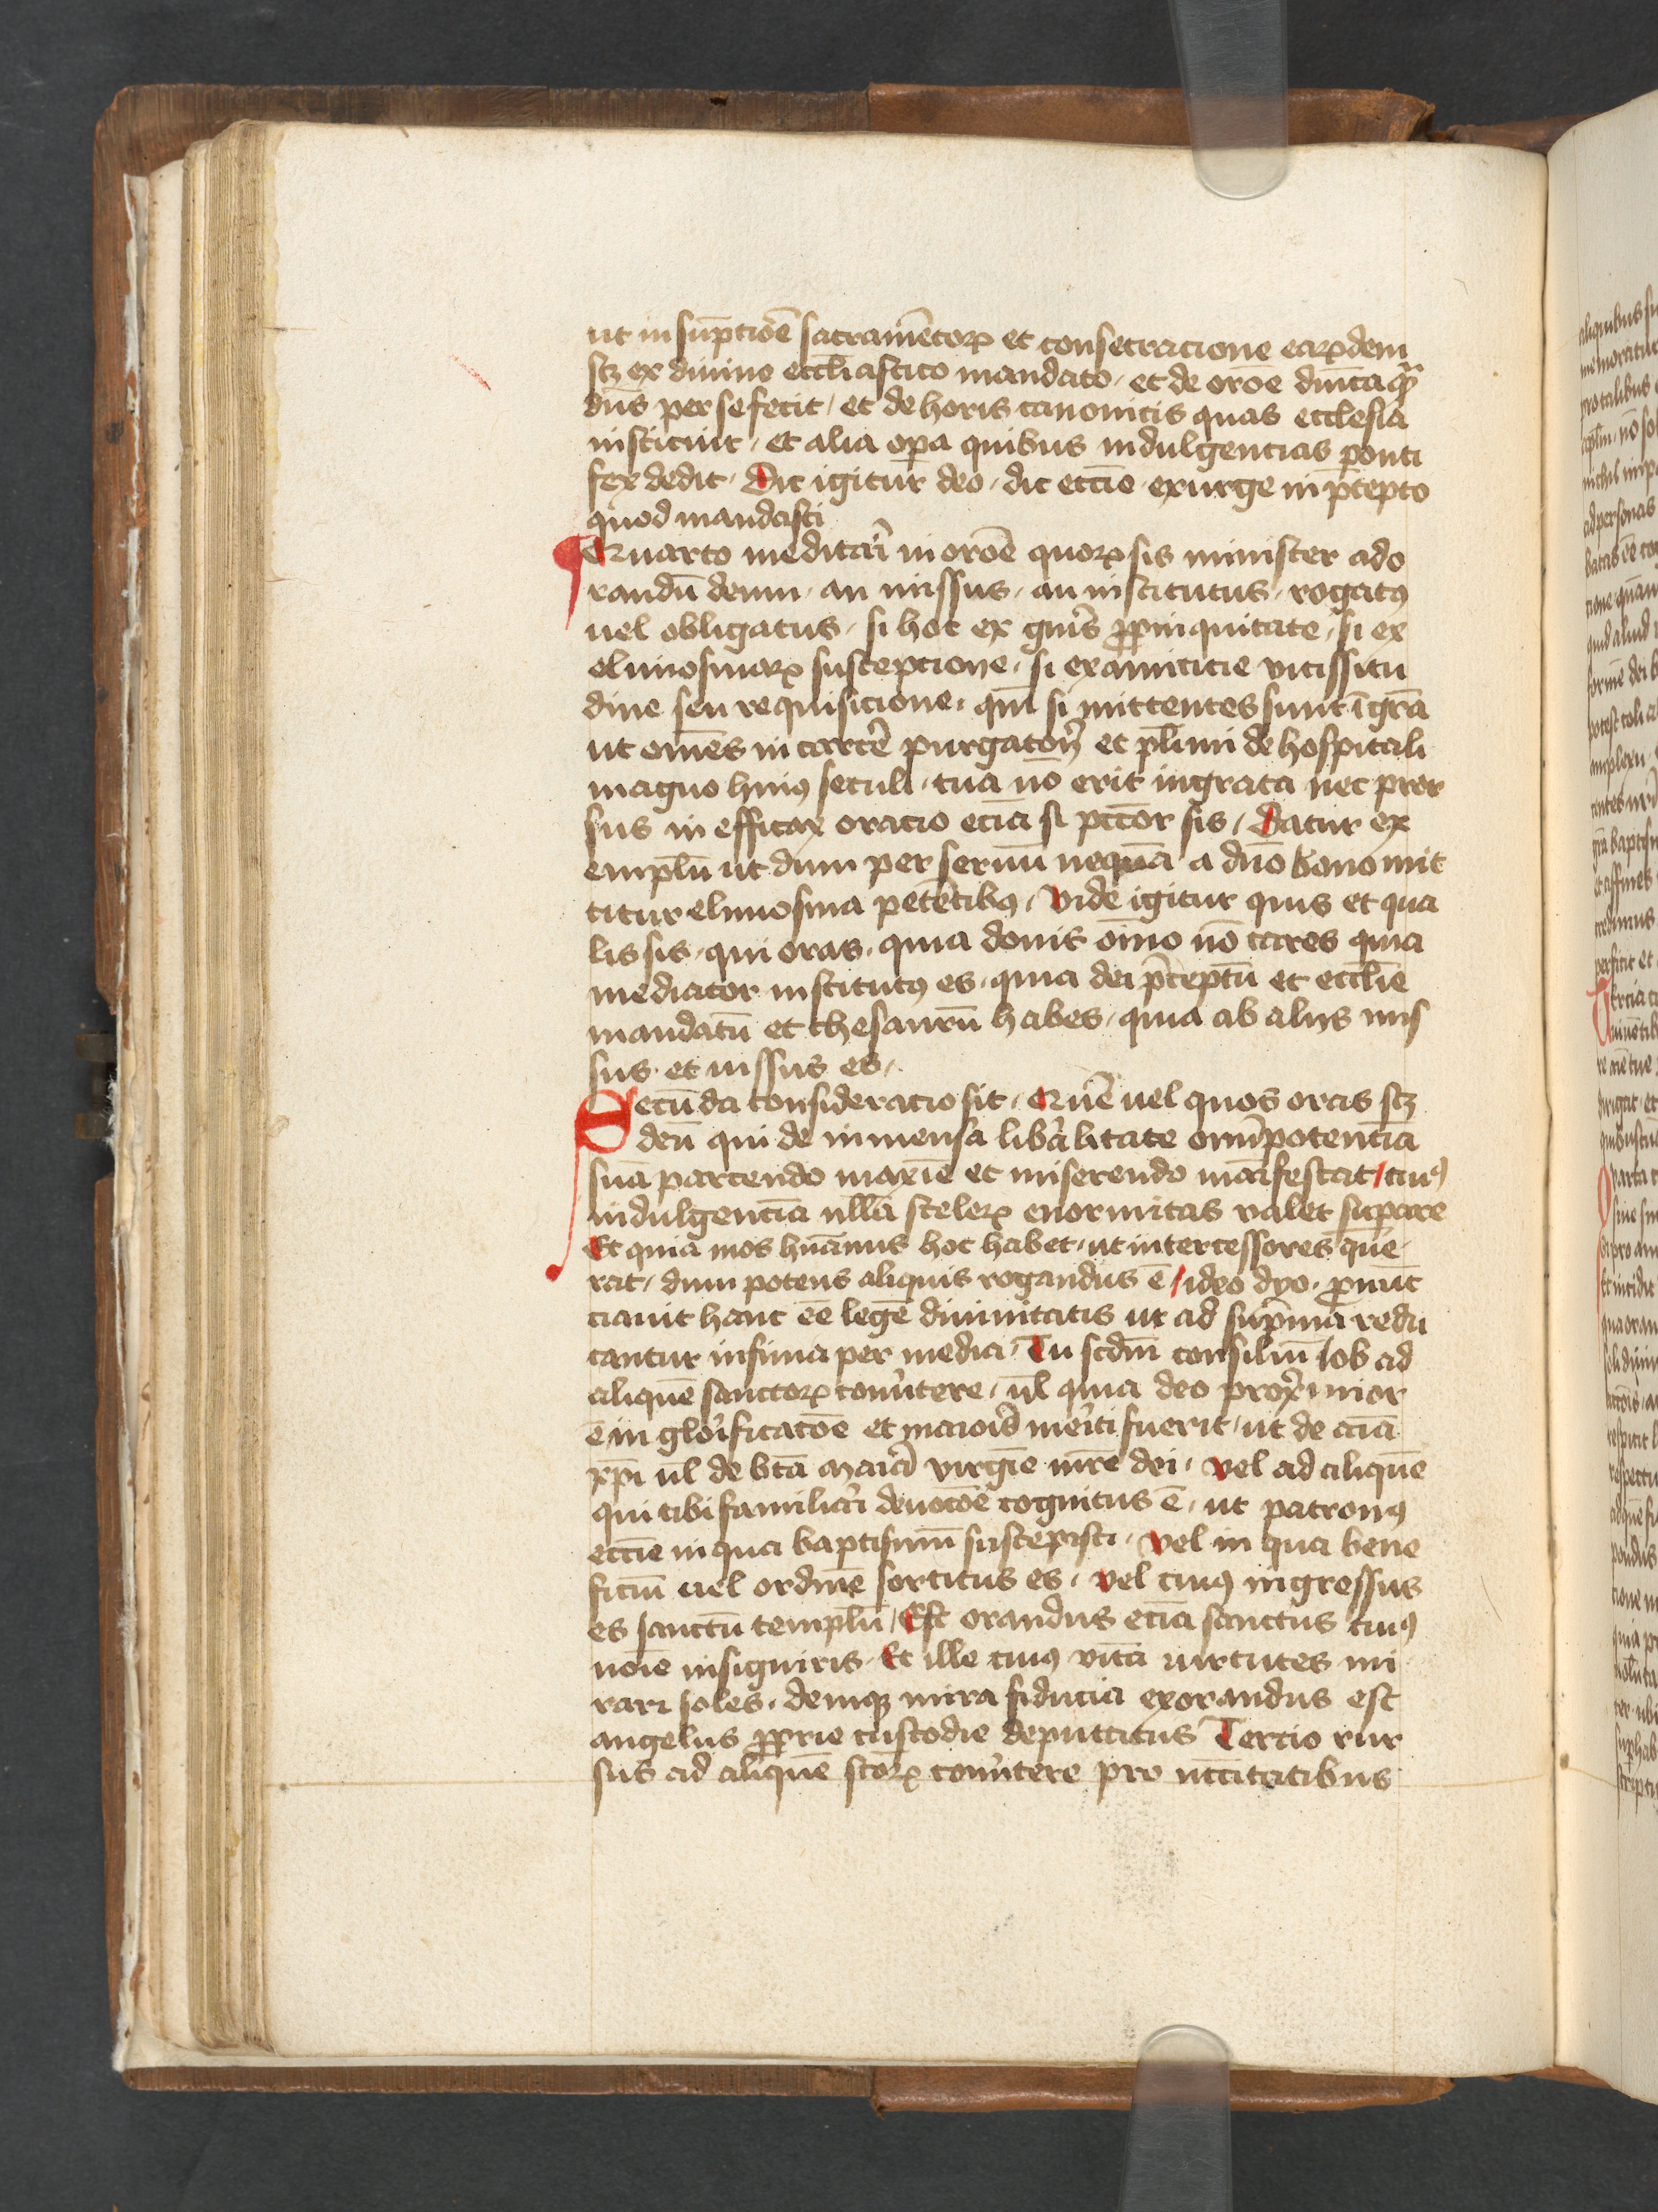 ut in sūptiōe sacramētoꝝ et consecracione earꝝdem
scꝫ ex diuino eccliastico mandato / et de orōe dnīca qm̄
dūs per se fecit / et de horis canonicis quas ecclesia
instituit / et alia oꝑa quibus indulgencias ponti
fex dedit / Dic igitur deo / dic eccīe / exurge in p̄cepto
quod mandasti
Quarto meditari in orōe quoꝝ sis minister ado
randū deum / an missus / an institutus / rogatꝰ
uel obligatus / si hoc ex gn̄is ꝓpinquitate / si ex
elimosinaꝝ susceptione / si ex amicicie vicissitu
dine seu requisicione / qm̄ si mittentes sunt ī grā
ut om̄es in carcē purgatorij et pl̄imi de hospitali
magno huiꝰ seculi / tua nō erit ingrata nec pror
sus in efficax oracio eciā si pccōr sis / Datur ex
emplū ut dum per seruū nequā a dn̄o bono mit
titur elimosina petētibꝰ / Vide igitur quis et qua
lis sis / qui oras / quia donis oīno nō cares quia
mediator institutꝰ es / quia dei p̄ceptū et eccl̄ie
mandatū et thesaurū habes / quia ab alijs mis
sus et iussus es /
Secūda consideracio sit / Quē uel quos oras scꝫ
deū qui de inmensa lib̄alitate om̄ipotenciā
suā parcendo maxīe et miserendo māifestat / cuiꝰ
indulgenciā nullā sceleꝝ enormitas valet suꝑare
Et quia mos hūanus hoc habet / ut intercessores que
rat / dum potens aliquis rogandus ē / ideo dyo / ꝓnūc
ciauit hanc eē legē diuinitatis ut ad sup̄ma redu
cantur infima per media / Tu scdm̄ consiliū Job ad
aliquē sanctoꝝ con̄uertere / ul̄ quia deo prox̄imior
ē in glorificatōe et maioris meriti fuerit / ut de aīa
xp̄i ul̄ de btā maria virgīe m̄re dei / vel ad aliquē
qui tibi familiari deuotōe cognitus ē / ut patronꝰ
eccīe in qua baptismū suscepisti / vel in qua bene
ficiū uel ordinē sortitus es / vel cuiꝰ ingressus
es sanctū templū / Est orandus eciā sanctus cuiꝰ
noīe insigniris / Et ille cuiꝰ vitā uirtutes mi
rari soles / deniqꝫ mira fiducia exorandus est
angelus ꝓprie custodie deputatus Tercio rur
sus ad aliquē sc̄oꝝ con̄uertere pro nc̄citatibus